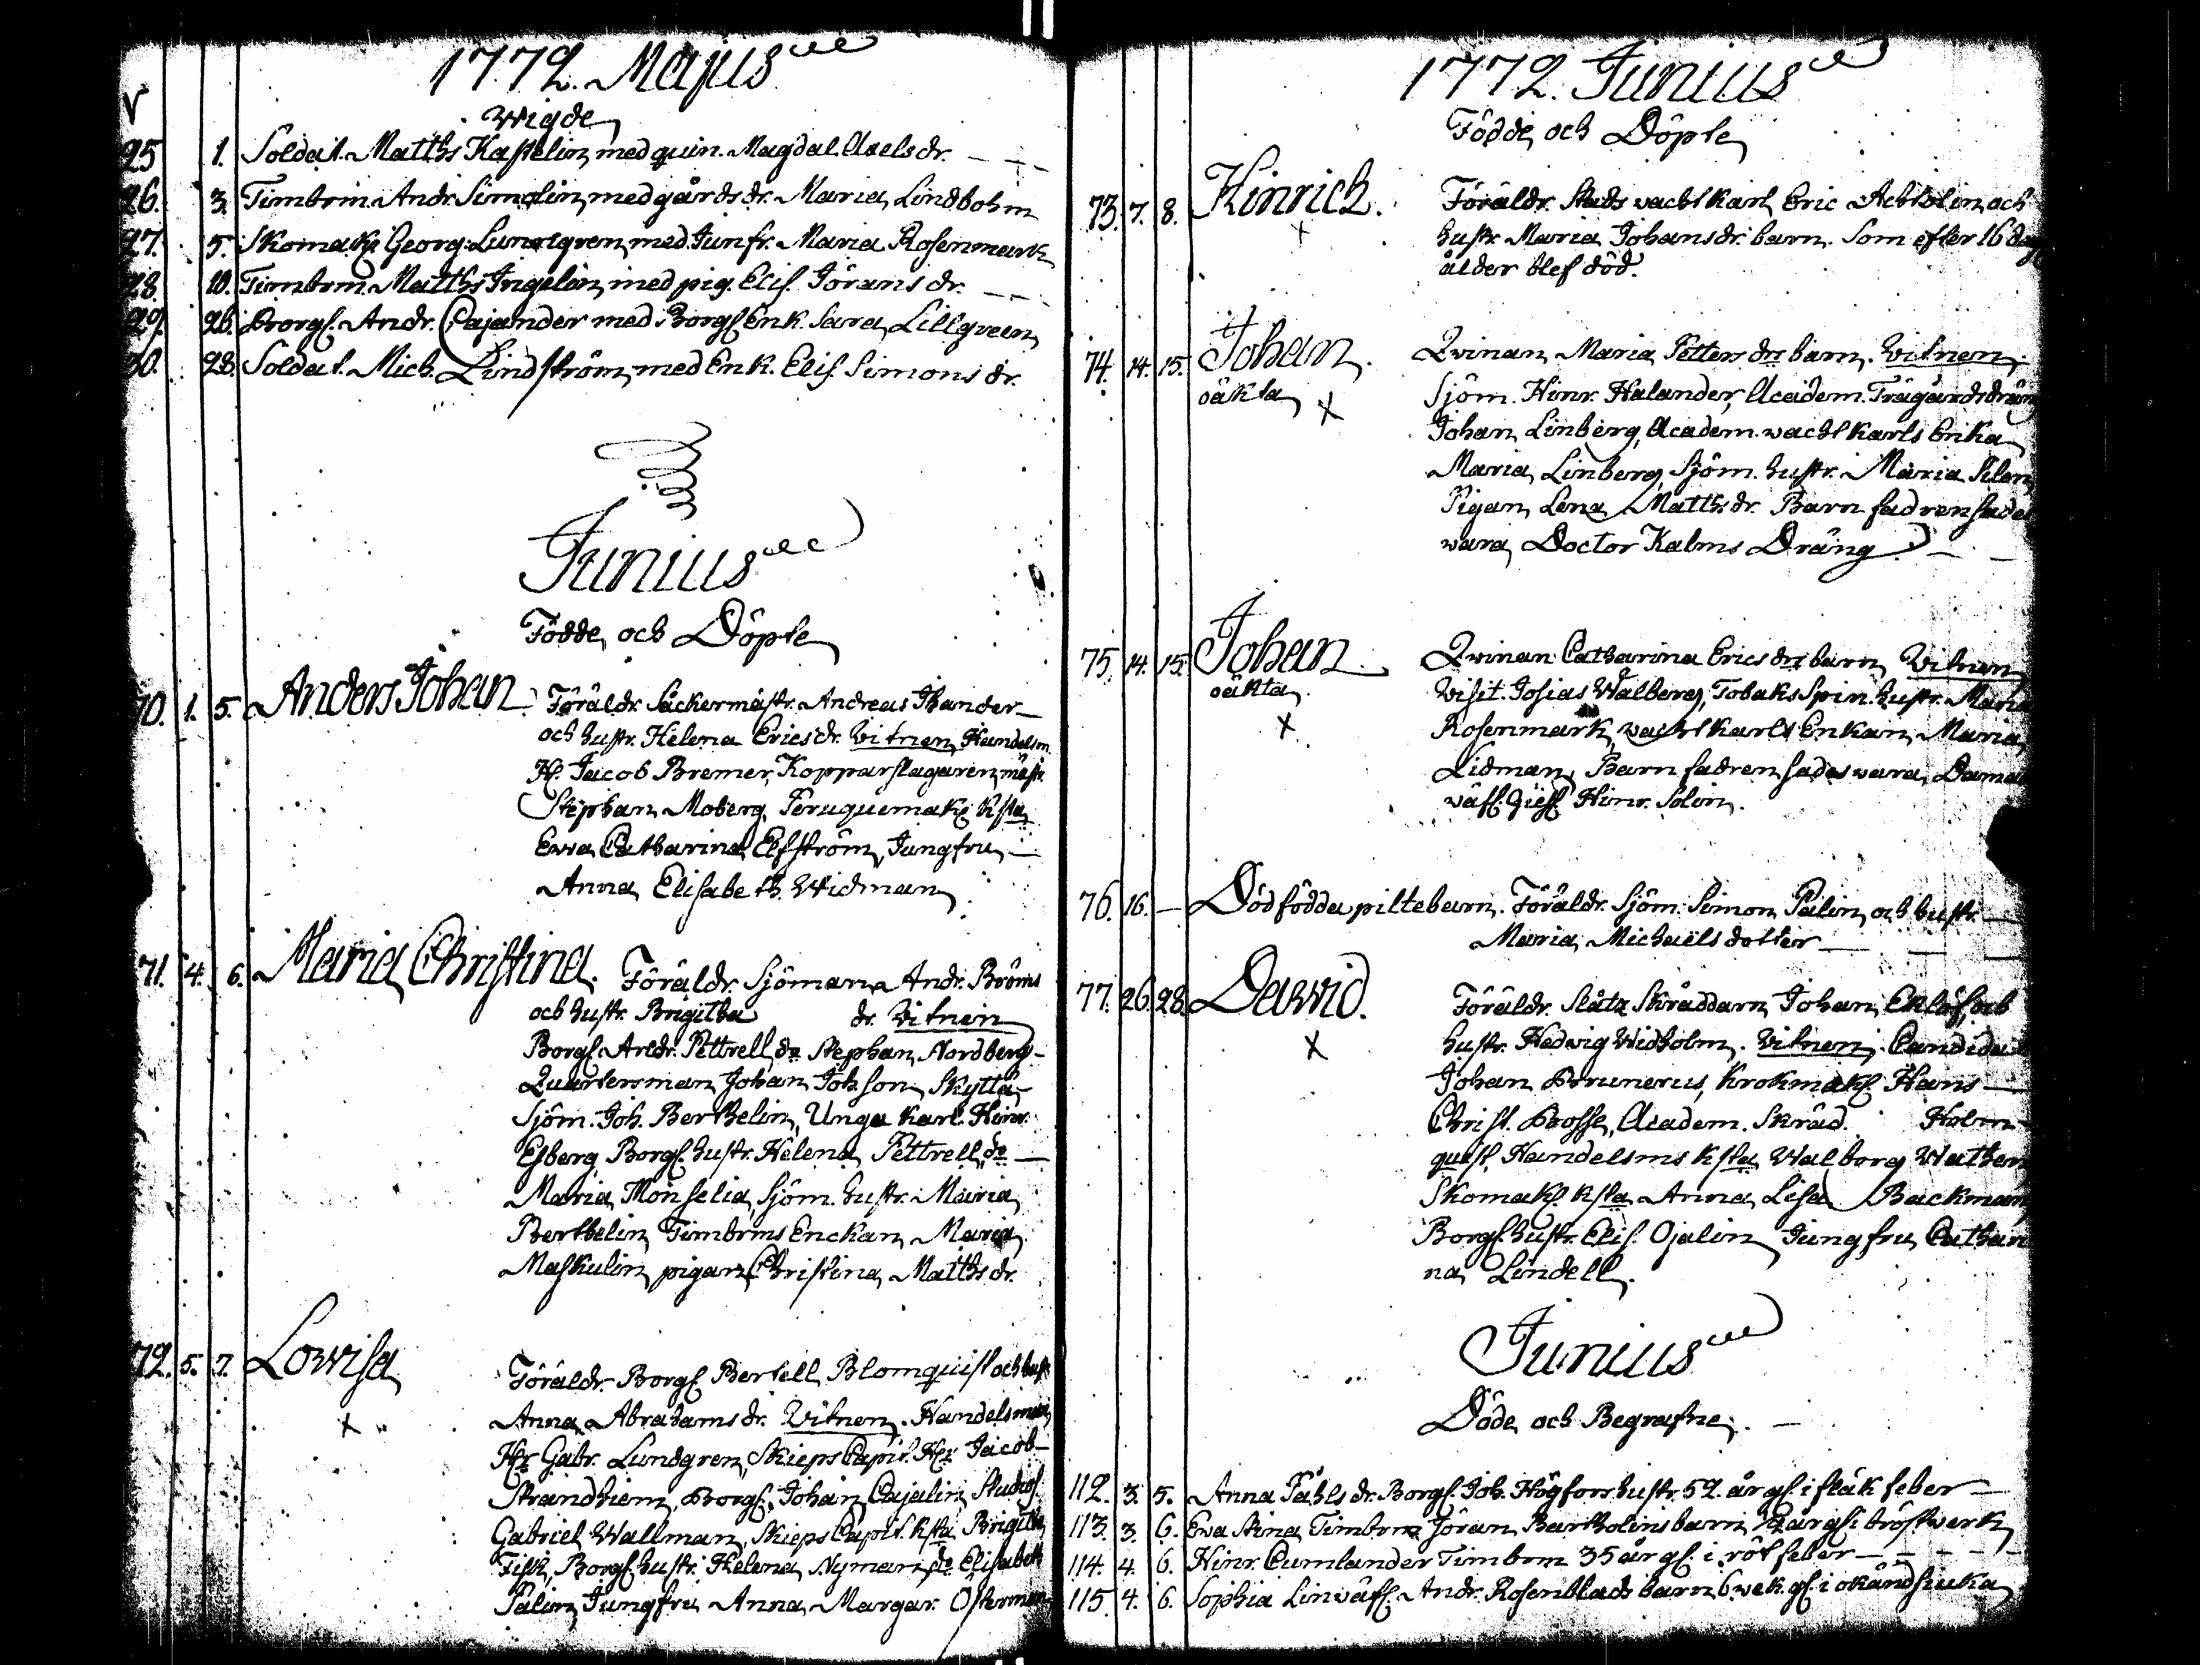 1772. Majus
Wigde
25 1. Soldat. Matths Kastelin, med quin. Magdal. Axels dr.
26. 3. Timbrm. Andr. Simolin, med gårds dr. Maria Lindbohm
27. 5. Skomak. Georg. Lundgren, med Junfr. Maria Rosenmark
28. 10. Timbrm. Matths Ingelin, med pig. Elis. Jörans dr.
29. 26. Borgs. Andr. Cajander med Borgs Enk. Sara Lillgreen
30. 28. Soldat. Mich. Lindström, med Enk. Elis. Simons dr.
Junius
Födde och Döpte
70. 1. 5. Anders Johan. Föräldr. Såckermästr. Andreas Thander
och hustr. Helena Erics dr. Vitnen Handelsm.
Hr. Jacob Bremer, Kopparslagaren, mäst.
Stephan Moberg, Peruquemak. Ksta
Ewa Catharina Elfström, Jungfru
Anna Elisabeth Widman
71. 4. 6. Maria Christina. Föräldr. Sjöman Andr. Bröms
och hustr. Brigitha dr. Vitnen
Borgs. Andr. Pettrell, do Stephan Nordberg
Quartersman Johan Johsson Skyttä
Sjöm. Joh. Berthelin, Unga Karl. Hinr.
Esberg, Borgs. hustr. Helena Pettrell, do
Maria Monselia, Sjöm. hustr. Maria
Berthelin, Timbrms Enckan Maria
Maskulin, pigan Christina Matths dr.
72. 5. 7. Lowisa Föräldr. Borgs. Bertell Blomquist och hust.
X Anna Abrahams dr. Vitnen. Handelsman
Hr Gabr. Lundgren, Skieps Capit. Hr Jacob
Strandhiem, Borgs. Johan Cajalin, Studios.
Gabriel Wallman, Skieps Capit. Ksta Brigitha
Fisk, Borgs hustr. Helena Nyman, do Elisabeth
Palin, Jungfru Anna Margar. Osterman
1772. Junius
Födde och Döpte
73. 7. 8. Hinrich. Föräldr. Stads wacht karl Eric Achtolin och
X hustr. Maria Johans dr. barn. Som efter 16 dag
ålder blef död.
74. 14. 15. Johan. Qvinan Maria Petters drs barn. Vitnen
oäkta X Sjöm. Hinr. Halander, Academ. Trägårdsdräng
Johan Linberg, Academ. wacht karls Enka
Maria Linberg, Sjöm. hustr. Maria
Pigan Lena Matths dr. Barnfadren sades
wara Doctor Kalms Dräng
75. 14. 15. Johan. Qvinan Catharina Erics drs barn Vitnen
oäkta Visit. Josias Walberg, Tobaks Spin. hustr. Maria
X Rosenmark, wacht karls Enkan Maria
Lidman, Barnfadren sades wara Dama
wäf. Gies. Hinr. Solin.
76. 16. — Dödfödda piltebarn. Föräldr. Sjöm. Simon Pålin och hustr.
Maria Michaëls dotter
77. 26. 28. David. Föräldr. Slåtz Skräddarn Johan Eklöf, och
X hustr. Hedvig Widholm. Vitnen. Candidat
Johan Brunerus, Krokmak. Hans
Christ. Bosse, Academ. Skräd. Holm
quist, Handelsms Ksta Walborg Wathen
Skomak. Ksta Anna Lisa Backman
Borgs. hustr. Elis. Ojalin, Jungfru Cathari
na Lindell.
Junius
Döde och Begrafne.
112. 3. 5. Anna Påhls dr. Borgs. Joh. Högfors hustr. 52. år gl. i fläk feber
113. 3 6. Ewa Stina Timbrm Jöran Bartholins barn år gl. i bröstwerk
114. 4. 6. Hinr. Cumlander Timbrm 35 år gl. i rötfeber
115. 4. 6. Sophia Linwäf. Andr. Rosenblads barn 6 wek. gl. i okänd siuka